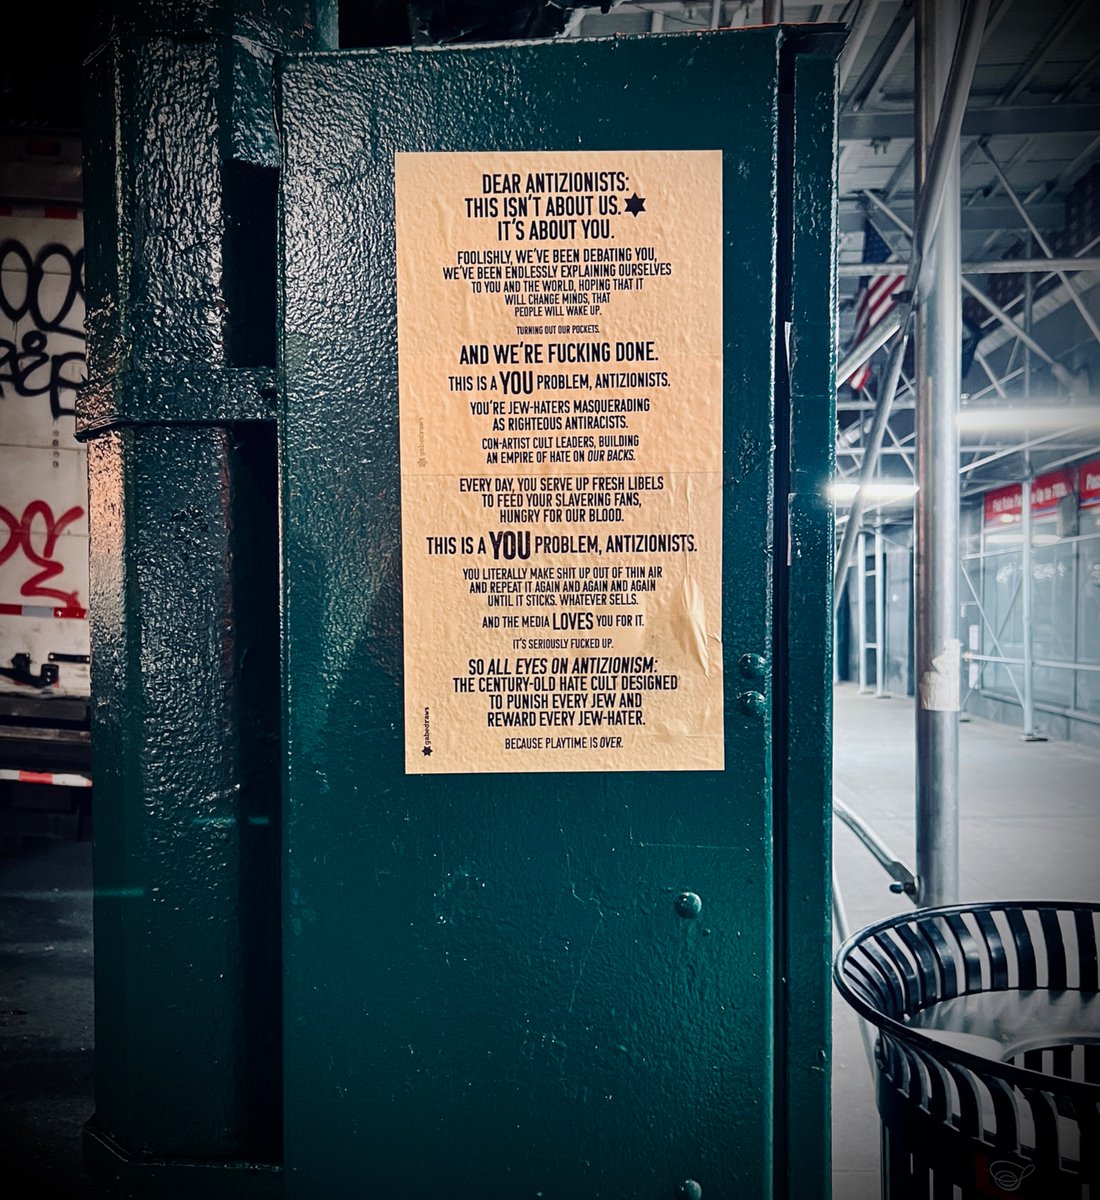 DEAR ANTIZIONISTS:
THIS ISN'T ABOUT US.
IT'S ABOUT YOU.
FOOLISHLY, WE'VE BEEN DEBATING YOU,
WE'VE BEEN ENDLESSLY EXPLAINING OURSELVES
TO YOU AND THE WORLD, HOPING THAT IT
WILL CHANGE MINDS, THAT
PEOPLE WILL WAKE UP.
TURNING OUT OUR POCKETS.
AND WE'RE FUCKING DONE.
THIS IS A YOU PROBLEM, ANTIZIONISTS.
YOU'RE JEW-HATERS MASQUERADING
AS RIGHTEOUS ANTIRACISTS.
CON-ARTIST CULT LEADERS, BUILDING
AN EMPIRE OF HATE ON OUR BACKS.
EVERY DAY, YOU SERVE UP FRESH LIBELS
TO FEED YOUR SLAVERING FANS,
HUNGRY FOR OUR BLOOD.
THIS IS A YOU PROBLEM, ANTIZIONISTS.
YOU LITERALLY MAKE SHIT UP OUT OF THIN AIR
AND REPEAT IT AGAIN AND AGAIN AND AGAIN
UNTIL IT STICKS. WHATEVER SELLS.
AND THE MEDIA LOVES YOU FOR IT.
IT'S SERIOUSLY FUCKED UP.
SO ALL EYES ON ANTIZIONISM:
THE CENTURY-OLD HATE CULT DESIGNED
TO PUNISH EVERY JEW AND
REWARD EVERY JEW-HATER.
BECAUSE PLAYTIME IS OVER.
gabedraws
gabedraws